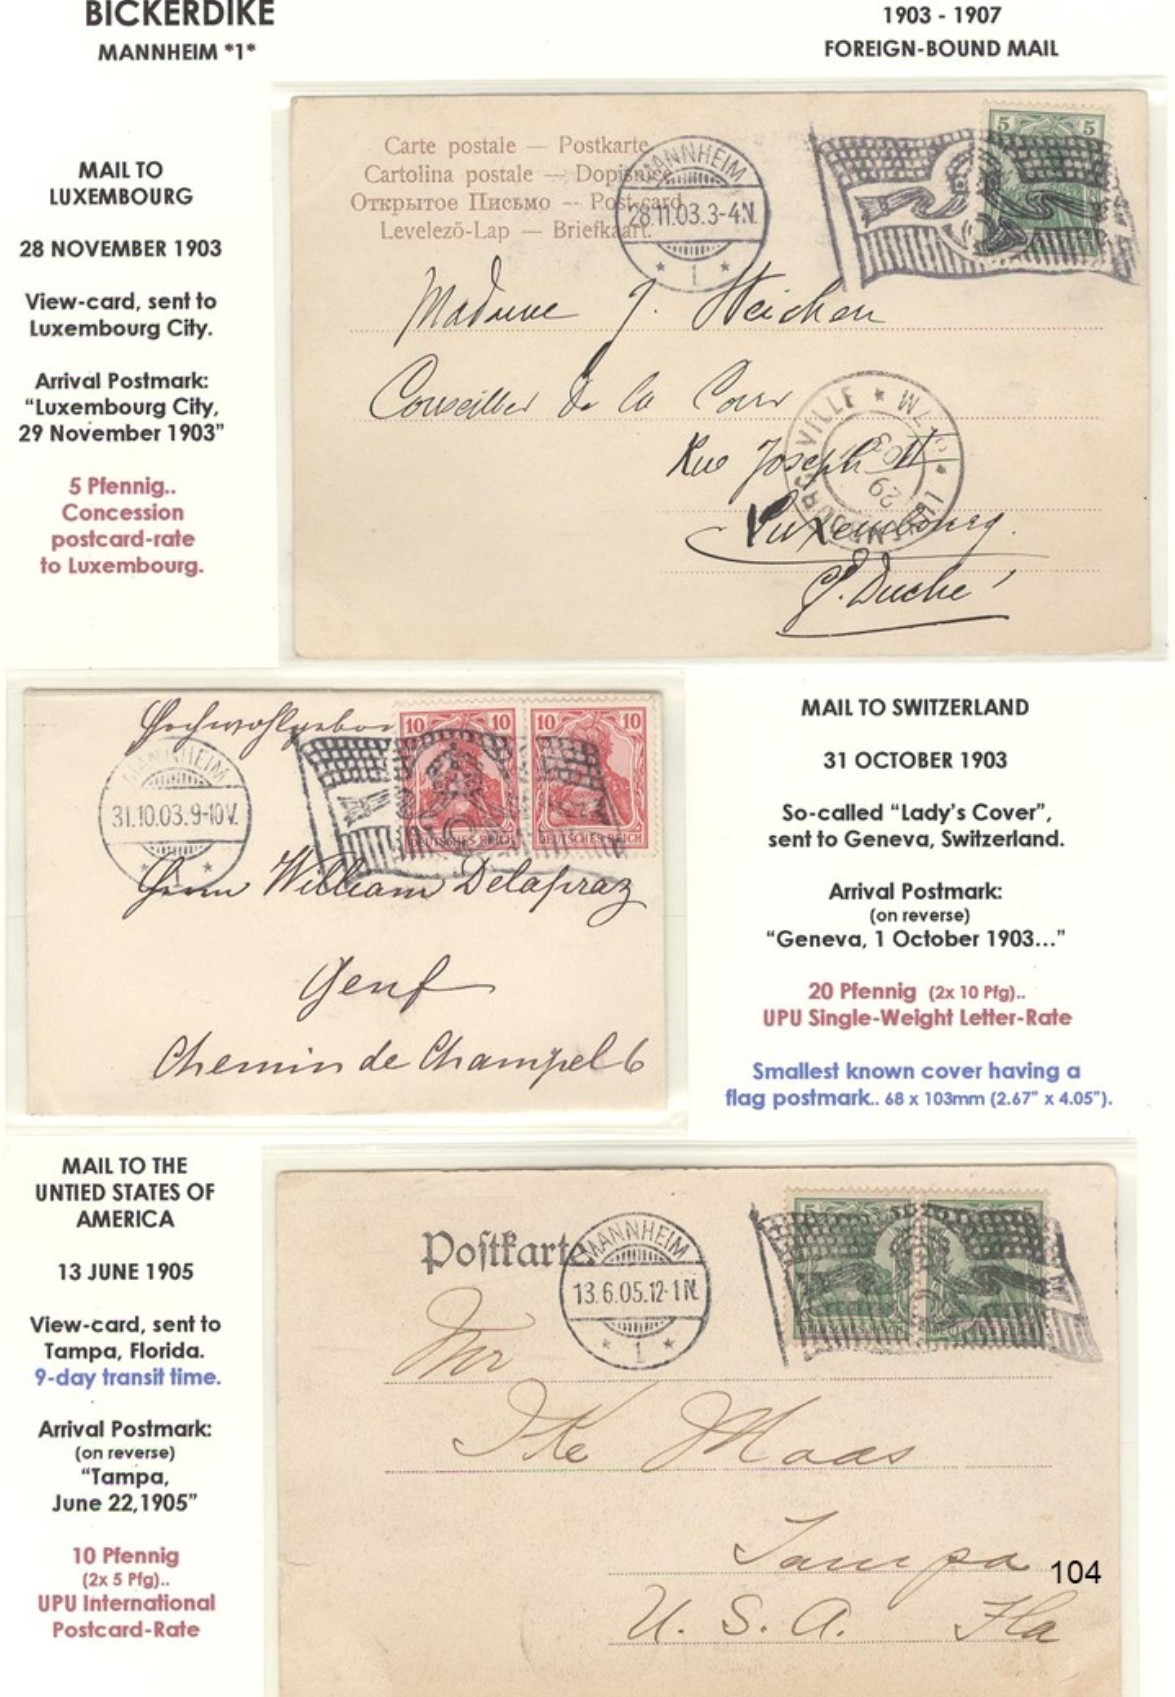 BICKERDIKE
MANNHEIM *1*
1903 - 1907
FOREIGN-BOUND MAIL
MAIL TO
LUXEMBOURG
28 NOVEMBER 1903
View-card, sent to
Luxembourg City.
Arrival Postmark:
“Luxembourg City,
29 November 1903”
5 Pfennig..
Concession
postcard-rate
to Luxembourg.
Carte postale — Postkarte
Cartolina postale — Dopisnice
Открытое Письмо — Post-card
Levelezö-Lap — Briefkaart.
MANNHEIM
28.11.03.3-4N.
* 1 *
5 5
Madame J. Weicken
Conseiller de la Cour
Rue Joseph II
Luxembourg.
G. Duché
LUXEMBOURG-VILLE
29
03
Hochwohlgebor
MANNHEIM
31.10.03.9-10V.
10 10 10 10
DEUTSCHES REICH DEUTSCHES REICH
Herrn William Delapraz
Genf
Chemin de Champel 6
MAIL TO SWITZERLAND
31 OCTOBER 1903
So-called “Lady’s Cover”,
sent to Geneva, Switzerland.
Arrival Postmark:
(on reverse)
“Geneva, 1 October 1903...”
20 Pfennig (2x 10 Pfg)..
UPU Single-Weight Letter-Rate
Smallest known cover having a
flag postmark.. 68 x 103mm (2.67" x 4.05").
MAIL TO THE
UNTIED STATES OF
AMERICA
13 JUNE 1905
View-card, sent to
Tampa, Florida.
9-day transit time.
Arrival Postmark:
(on reverse)
“Tampa,
June 22,1905”
10 Pfennig
(2x 5 Pfg)..
UPU International
Postcard-Rate
Postkarte
MANNHEIM
13.6.05.12-1N.
* 1 *
Mr
Ike Maas
Tampa
U. S. A. Fla
104